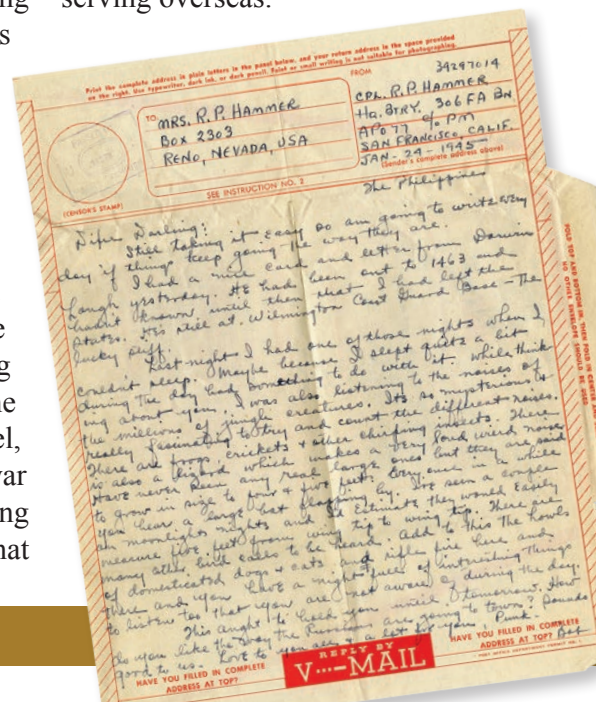 serving overseas.
ing
s
e
g
ne
el,
var
ing
hat
Print the complete address in plain letters in the panel below, and your return address in the space provided
on the right. Use typewriter, dark ink, or dark pencil. Faint or small writing is not suitable for photographing.
TO
MRS. R.P. HAMMER
Box 2303
RENO, NEVADA, USA
FROM
39297014
CPL. R.P. HAMMER
Hq. BTRY. 306 FA BN
APO 77 % PM
SAN FRANCISCO, CALIF.
JAN - 24 - 1945
(Sender's complete address above)
(CENSOR'S STAMP)
SEE INSTRUCTION NO. 2
The Philippines
Darling:
Still taking it easy so am going to write every
day if things keep going the way they are.
I had a card and letter from Darwin
Laugh yesterday. He had been out to 1463 and
hadn't known, until then that I had left the
states. He's still at Wilmington Coast Guard Base - The
lucky stiff.
Last night I had one of those nights when I
couldn't sleep. Maybe because I slept quite a bit
during the day had something to do with it. While think
ing about you, I was also listening to the noises of
the millions of jungle creatures. Its so mysterious &
really fascinating to try and count the different noises.
There are frogs, crickets & other chirping insects. There
is also a lizard which makes a very loud weird noise
Have never seen any real large ones but they are said
to grow in size to four & five feet. Every once in a while
you hear a large bat flapping by. I've seen a couple
on moonlight nights and I'd Estimate they would Easily
measure five feet from wing tip to wing tip. There are
many other bird calls to be heard. Add to this the howls
of domesticated dogs & cats and rifle fire here and
there and you have a night full of interesting things
to listen to that you are not aware of during the day.
This ought to hold you until tomorrow. How
do you like the way the Russians are going to town? Sounds
good to us. Love to you all & a lot for you, Punk.
Bob
HAVE YOU FILLED IN COMPLETE
ADDRESS AT TOP?
REPLY BY
V···—MAIL
HAVE YOU FILLED IN COMPLETE
ADDRESS AT TOP?